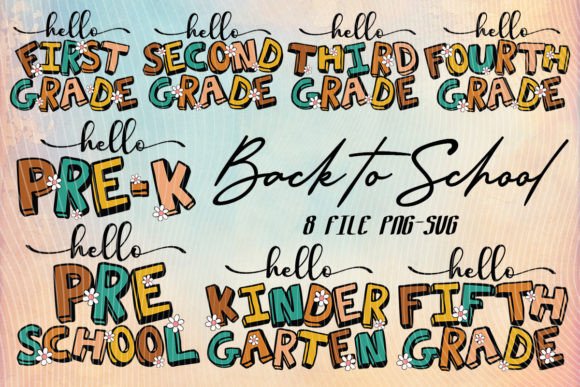 hello
FIRST
GRADE
hello
SECOND
GRADE
hello
THIRD
GRADE
hello
FOURTH
GRADE
hello
PRE-K
Back to School
8 FILE PNG-SVG
hello
PRE
SCHOOL
hello
KINDER
GARTEN
hello
FIFTH
GRADE